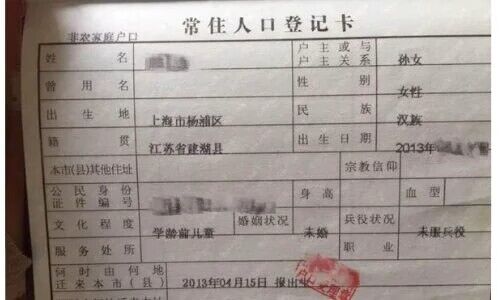 常住人口登记卡
非农家庭户口
姓名 户主或与户主关系 孙女
曾用名 性别 女性
出生地 上海市杨浦区 民族 汉族
籍贯 江苏省建湖县 出生日期 2013年
本市(县)其他住址 宗教信仰
公民身份证件编号 身高 血型
文化程度 学龄前儿童 婚姻状况 未婚 兵役状况 未服兵役
服务处所 职业
何时由何地迁来本市(县) 2013年04月15日 报出生